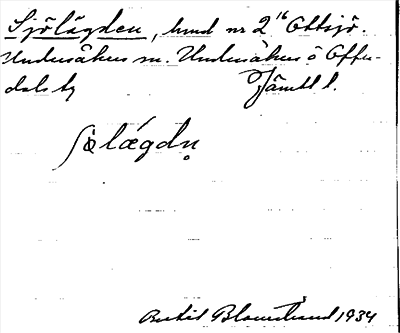 Sjölägden, hmd nr 2¹⁶ Ottsjö.
Undersåkers sn. Undersåkers o Offer-
dals tg Jämtl l.
sjölægdn̥
Bertil Blomstrand 1934